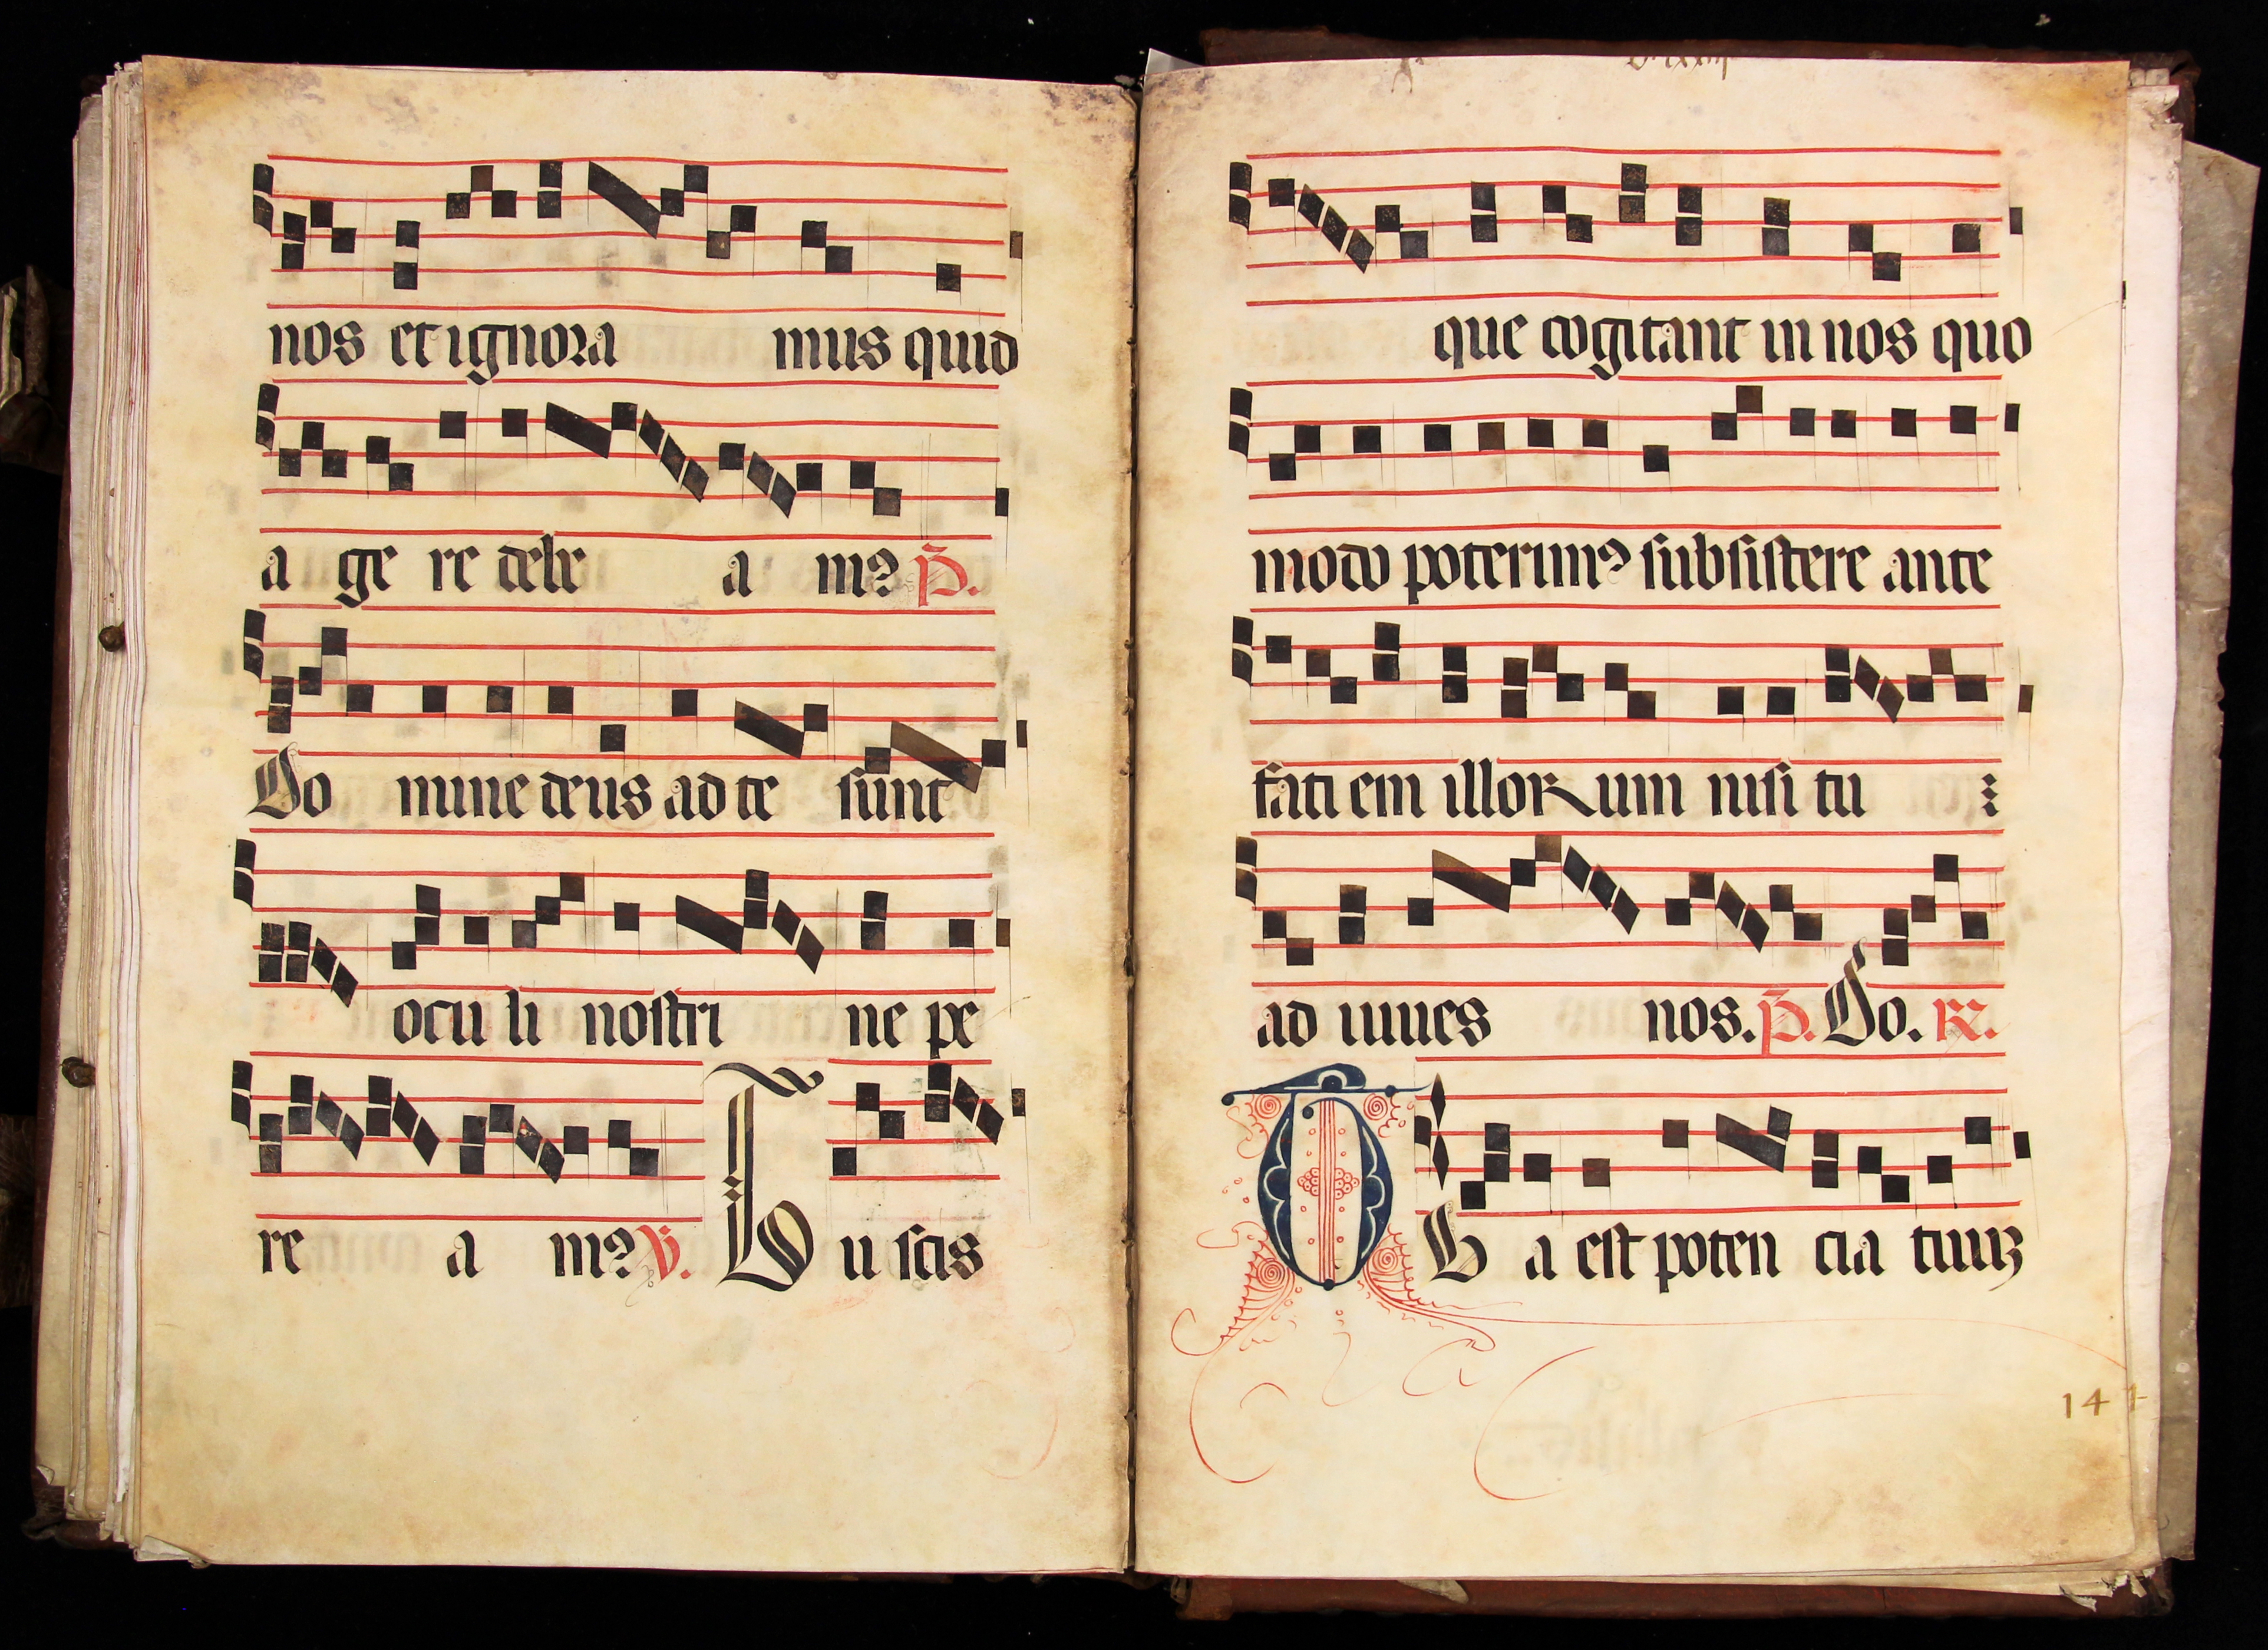 nos et ignora mus quid
a ge re debe a m9 P.
Do mine deus ad te sunt
ocu li nostri ne pe
re a m9 V. Tu scis
que cogitant in nos quo
modo poterim9 subsistere ante
faci em illorum nisi tu
ad iuues nos. P. Do. R.
Tu a est poten cia tuuz
14